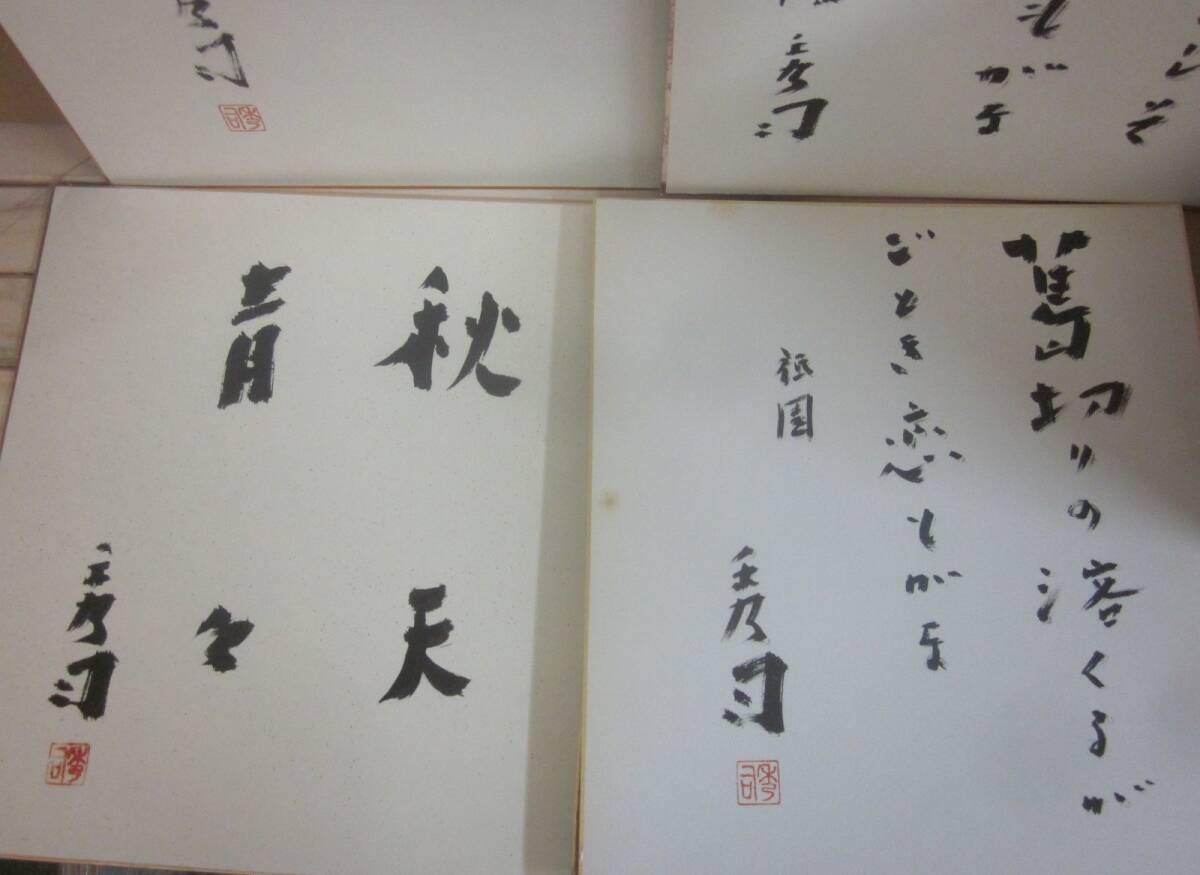 秀司
もがな
秀司
秋天
青々
秀司
葛切りの溶くるが
ごとき恋もがな
祇園
秀司